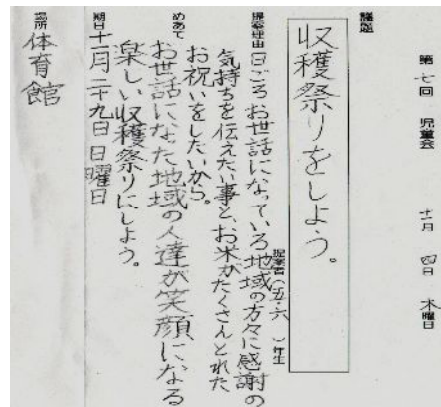 第七回 児童会 十一月 四日 木曜日
議題
収穫祭りをしよう。
提案者(五・六 )年生
提案理由 日ごろお世話になっている地域の方々に感謝の
気持ちを伝えたい事と、お米がたくさんとれた
お祝いをしたいから。
めあて お世話になった地域の人達が笑顔になる
楽しい収穫祭りにしよう。
期日 十一月二十九日 日曜日
場所 体育館